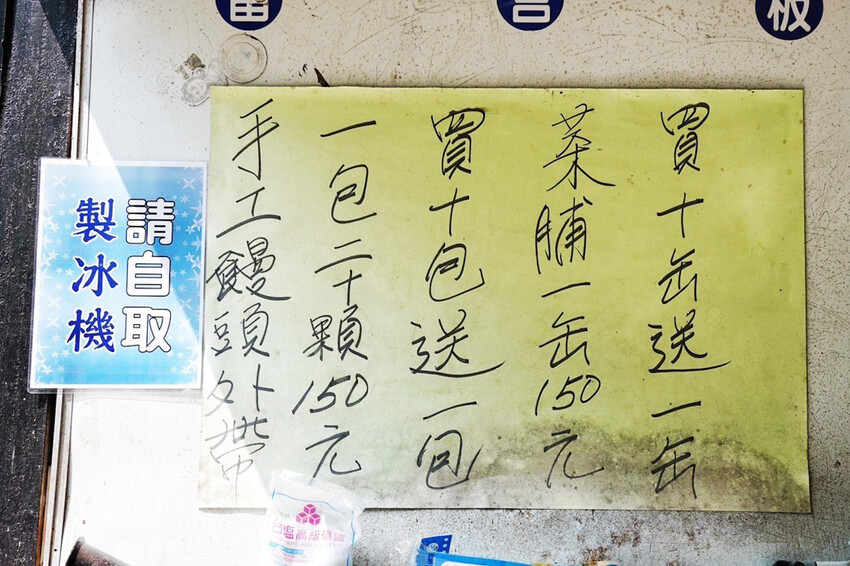 留言板
請自取
製冰機
手工饅頭外帶
一包二十顆150元
買十包送一包
菜脯一缶150元
買十缶送一缶
高級碘